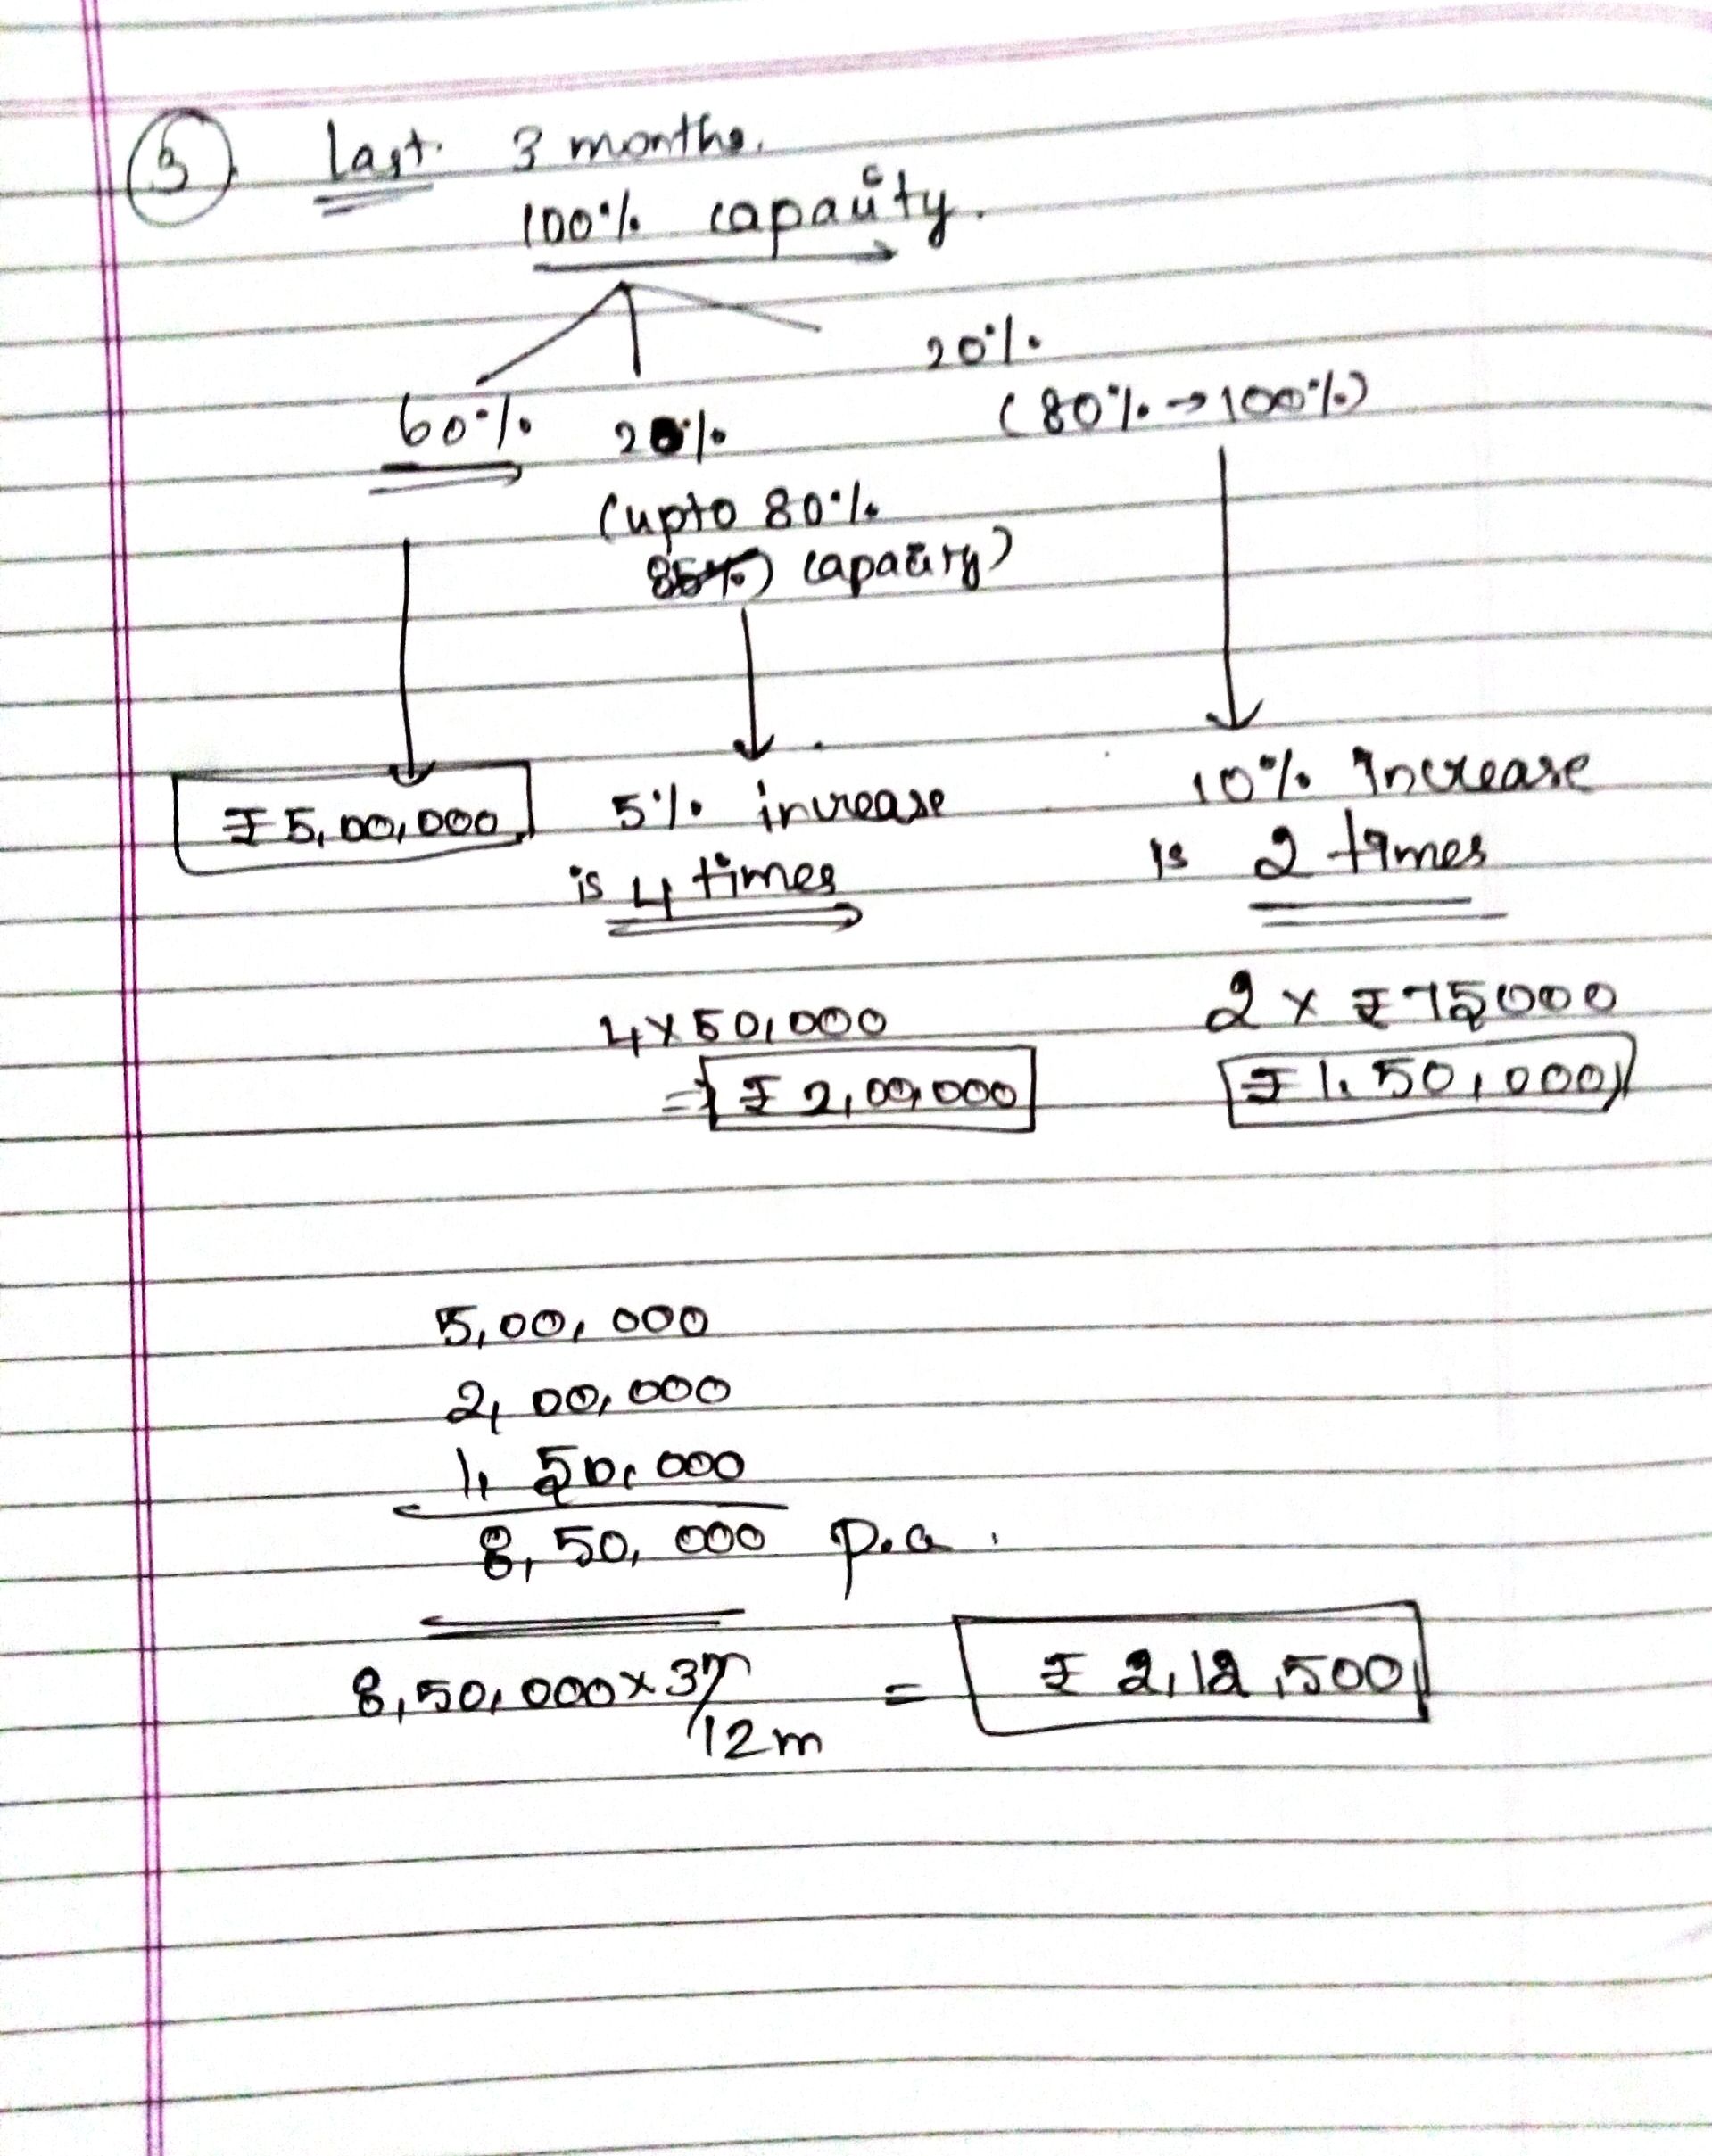 ③. Last. 3 months.
100% capacity.
20%
(80% → 100%)
60% 20%
(upto 80%
85%) capacity)
₹ 5,00,000 5% increase 10% Increase
is 4 times is 2 times
4 x 50,000 2 x ₹ 75000
= ₹ 2,00,000 ₹ 1,50,000
5,00,000
2,00,000
1,50,000
8,50,000 p.a.
8,50,000 x 3m/12m = ₹ 2,12,500